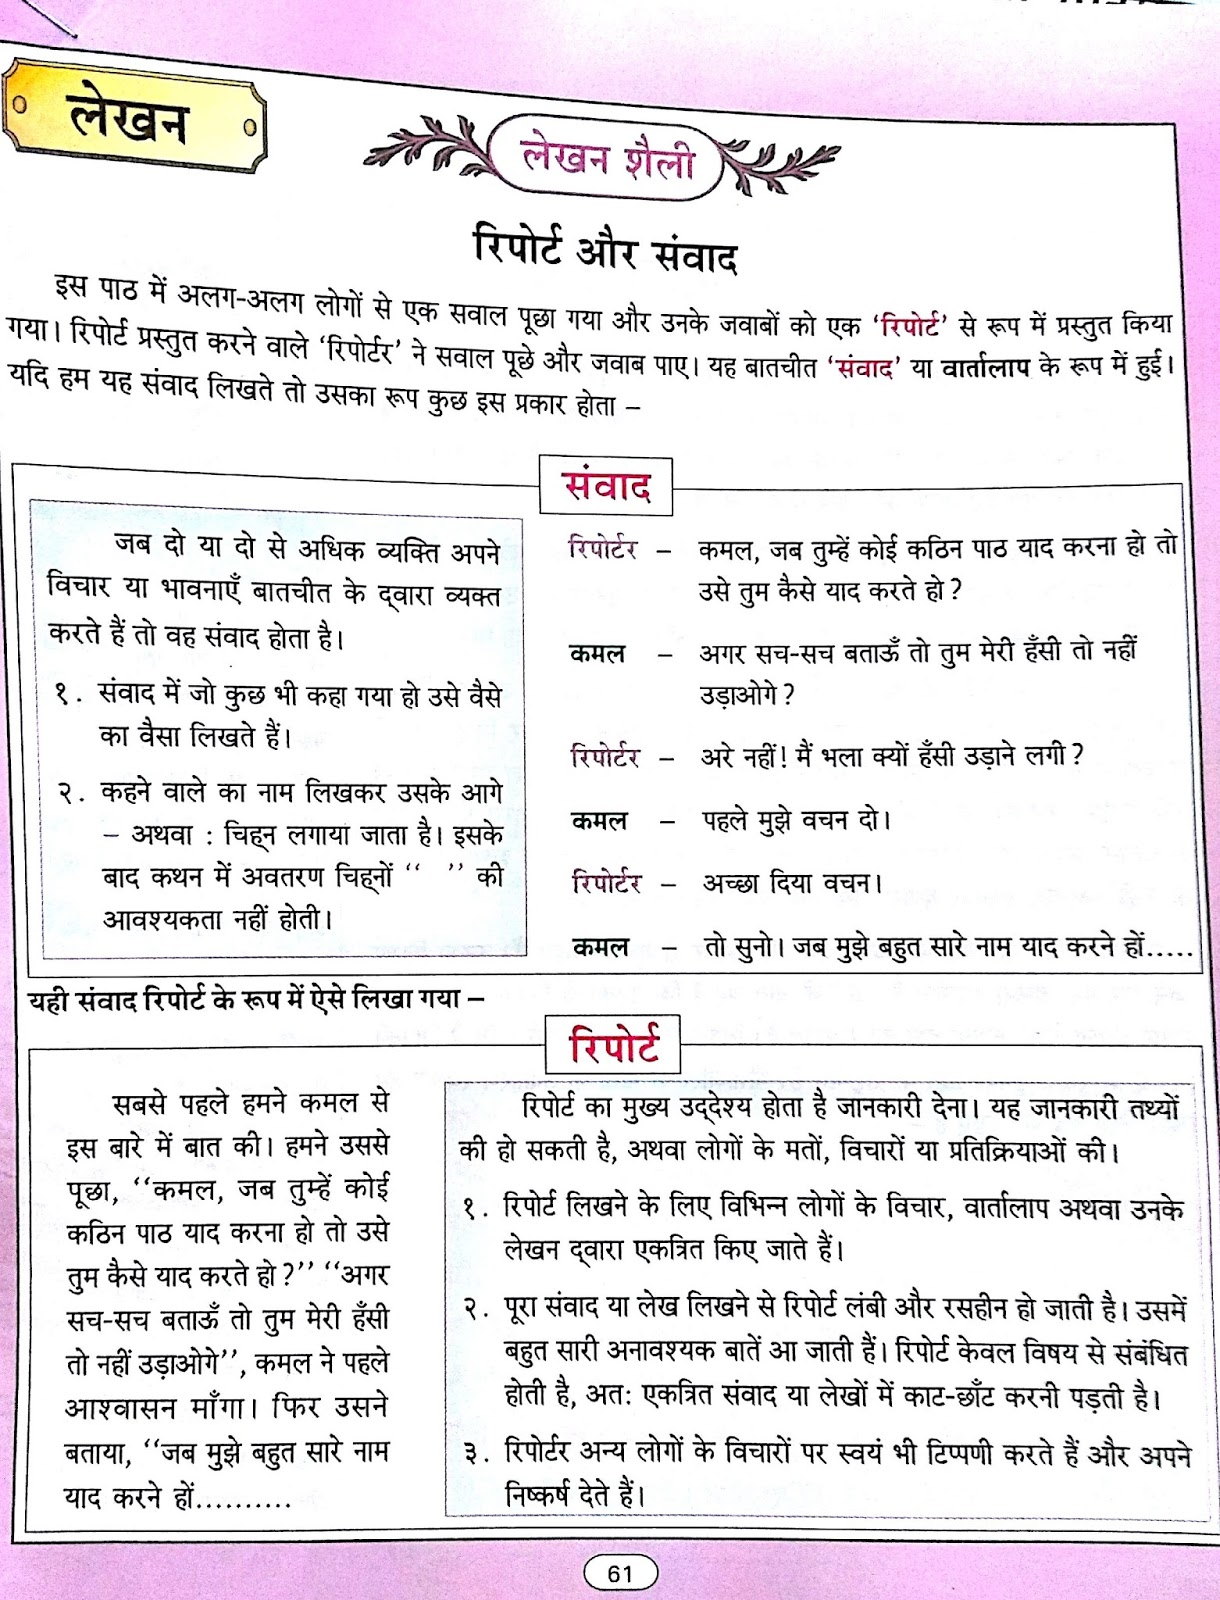 लेखन
लेखन शैली
रिपोर्ट और संवाद
इस पाठ में अलग-अलग लोगों से एक सवाल पूछा गया और उनके जवाबों को एक ‘रिपोर्ट’ से रूप में प्रस्तुत किया
गया। रिपोर्ट प्रस्तुत करने वाले ‘रिपोर्टर’ ने सवाल पूछे और जवाब पाए। यह बातचीत ‘संवाद’ या वार्तालाप के रूप में हुई।
यदि हम यह संवाद लिखते तो उसका रूप कुछ इस प्रकार होता –
संवाद
जब दो या दो से अधिक व्यक्ति अपने
विचार या भावनाएँ बातचीत के द्वारा व्यक्त
करते हैं तो वह संवाद होता है।
१. संवाद में जो कुछ भी कहा गया हो उसे वैसे
का वैसा लिखते हैं।
२. कहने वाले का नाम लिखकर उसके आगे
– अथवा : चिह्न लगाया जाता है। इसके
बाद कथन में अवतरण चिह्नों “ ” की
आवश्यकता नहीं होती।
रिपोर्टर – कमल, जब तुम्हें कोई कठिन पाठ याद करना हो तो
उसे तुम कैसे याद करते हो?
कमल – अगर सच-सच बताऊँ तो तुम मेरी हँसी तो नहीं
उड़ाओगे?
रिपोर्टर – अरे नहीं! मैं भला क्यों हँसी उड़ाने लगी?
कमल – पहले मुझे वचन दो।
रिपोर्टर – अच्छा दिया वचन।
कमल – तो सुनो। जब मुझे बहुत सारे नाम याद करने हों.....
यही संवाद रिपोर्ट के रूप में ऐसे लिखा गया –
रिपोर्ट
सबसे पहले हमने कमल से
इस बारे में बात की। हमने उससे
पूछा, “कमल, जब तुम्हें कोई
कठिन पाठ याद करना हो तो उसे
तुम कैसे याद करते हो?” “अगर
सच-सच बताऊँ तो तुम मेरी हँसी
तो नहीं उड़ाओगे”, कमल ने पहले
आश्वासन माँगा। फिर उसने
बताया, “जब मुझे बहुत सारे नाम
याद करने हों..........
रिपोर्ट का मुख्य उद्देश्य होता है जानकारी देना। यह जानकारी तथ्यों
की हो सकती है, अथवा लोगों के मतों, विचारों या प्रतिक्रियाओं की।
१. रिपोर्ट लिखने के लिए विभिन्न लोगों के विचार, वार्तालाप अथवा उनके
लेखन द्वारा एकत्रित किए जाते हैं।
२. पूरा संवाद या लेख लिखने से रिपोर्ट लंबी और रसहीन हो जाती है। उसमें
बहुत सारी अनावश्यक बातें आ जाती हैं। रिपोर्ट केवल विषय से संबंधित
होती है, अतः एकत्रित संवाद या लेखों में काट-छाँट करनी पड़ती है।
३. रिपोर्टर अन्य लोगों के विचारों पर स्वयं भी टिप्पणी करते हैं और अपने
निष्कर्ष देते हैं।
61